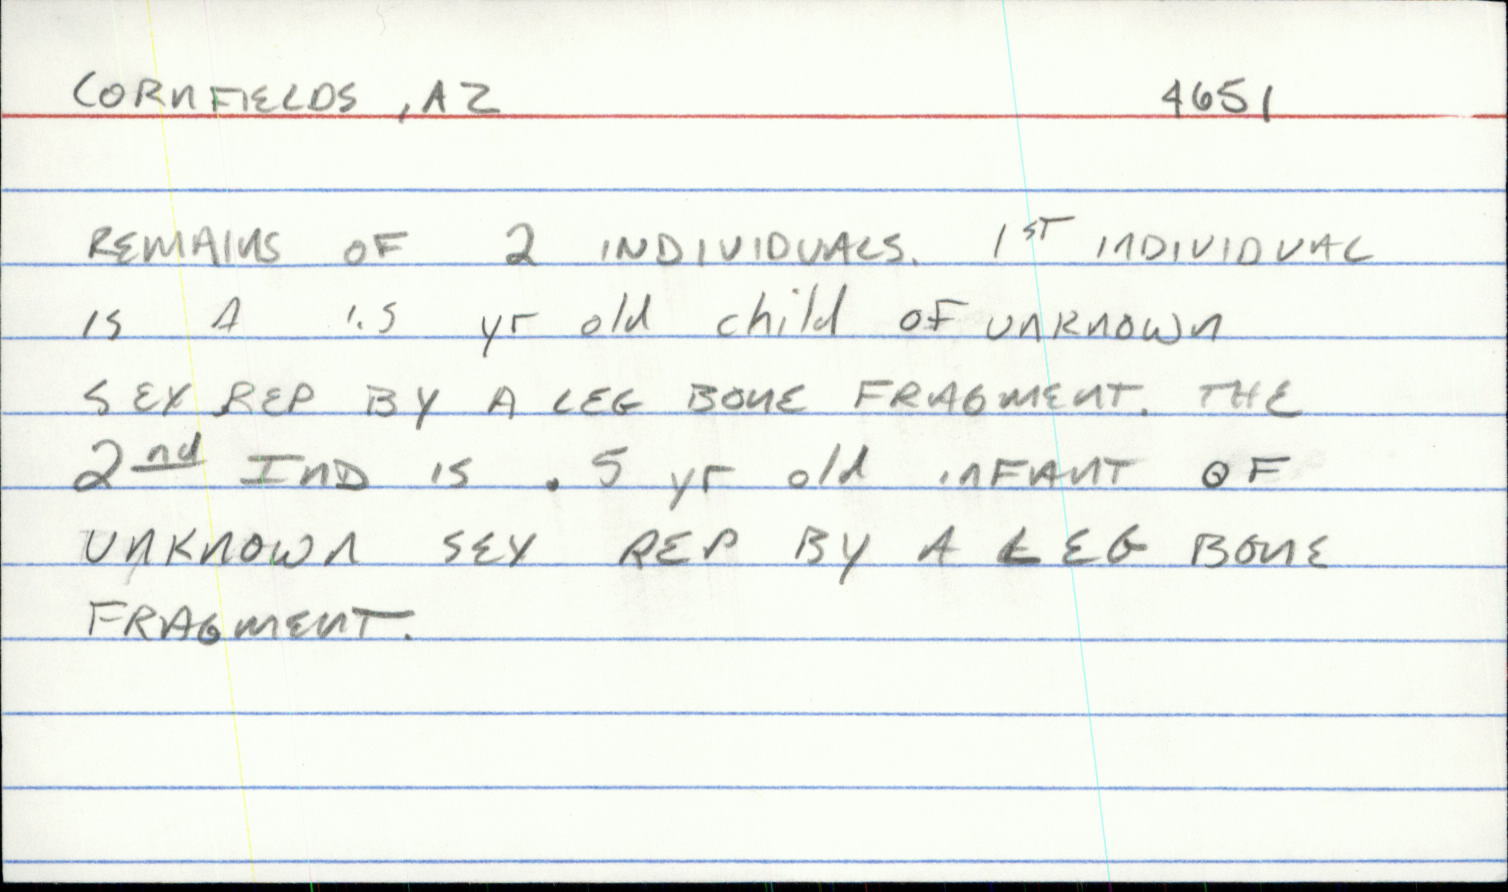 CORNFIELDS, AZ 4651
REMAINS OF 2 INDIVIDUALS. 1ST INDIVIDUAL
IS A 1.5 yr old child OF UNKNOWN
SEX REP BY A LEG BONE FRAGMENT. THE
2nd IND IS .5 yr old INFANT OF
UNKNOWN SEX REP BY A LEG BONE
FRAGMENT.